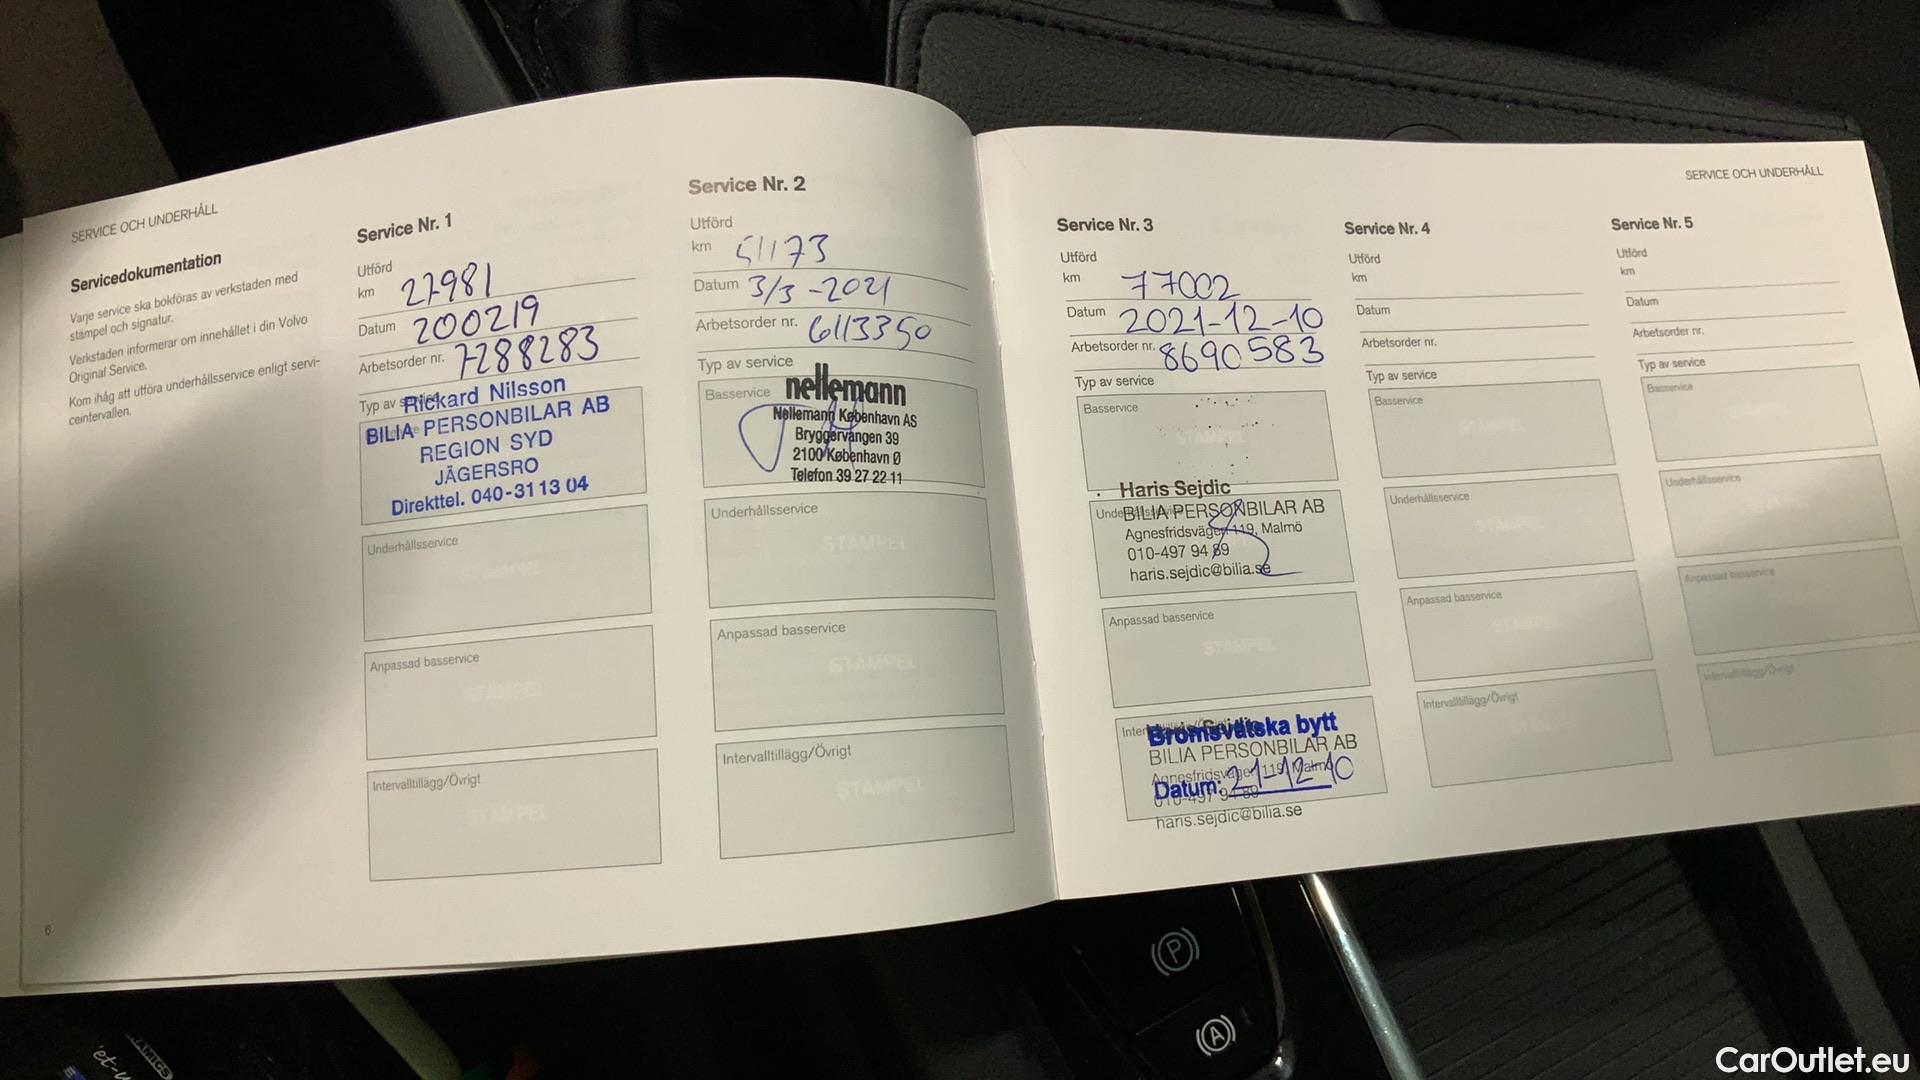 SERVICE OCH UNDERHÅLL
Servicedokumentation
Varje service ska bokföras av verkstaden med
stämpel och signatur.
Verkstaden informerar om innehållet i din Volvo
Original Service.
Kom ihåg att utföra underhållsservice enligt servi-
ceintervallen.
6
Service Nr. 1
Utförd
km 27981
Datum 200219
Arbetsorder nr. 7288283
Typ av
Rickard Nilsson
BILIA PERSONBILAR AB
REGION SYD
JÄGERSRO
Direkttel. 040-31 13 04
Underhållsservice
STÄMPEL
Anpassad basservice
STÄMPEL
Intervalltillägg/Övrigt
STÄMPEL
Service Nr. 2
Utförd
km 51173
Datum 3/3-2021
Arbetsorder nr. 6113350
Typ av service
Basservice
nellemann
Nellemann København AS
Bryggervangen 39
2100 København Ø
Telefon 39 27 22 11
Underhållsservice
STÄMPEL
Anpassad basservice
STÄMPEL
Intervalltillägg/Övrigt
STÄMPEL
SERVICE OCH UNDERHÅLL
Service Nr. 3
Utförd
km 77002
Datum 2021-12-10
Arbetsorder nr. 8690583
Typ av service
Basservice
STÄMPEL
Haris Sejdic
BILIA PERSONBILAR AB
Agnesfridsvägen 119, Malmö
010-497 94 89
haris.sejdic@bilia.se
Anpassad basservice
STÄMPEL
Bromsvätska bytt
BILIA PERSONBILAR AB
Agnesfridsvägen 119, Malmö
Datum: 21-12-10
010-497 94 89
haris.sejdic@bilia.se
Service Nr. 4
Utförd
km
Datum
Arbetsorder nr.
Typ av service
Basservice
STÄMPEL
Underhållsservice
STÄMPEL
Anpassad basservice
STÄMPEL
Intervalltillägg/Övrigt
Service Nr. 5
Utförd
km
Datum
Arbetsorder nr.
Typ av service
Basservice
Underhållsservice
Anpassad basservice
Intervalltillägg/Övrigt
P
A
CarOutlet.eu